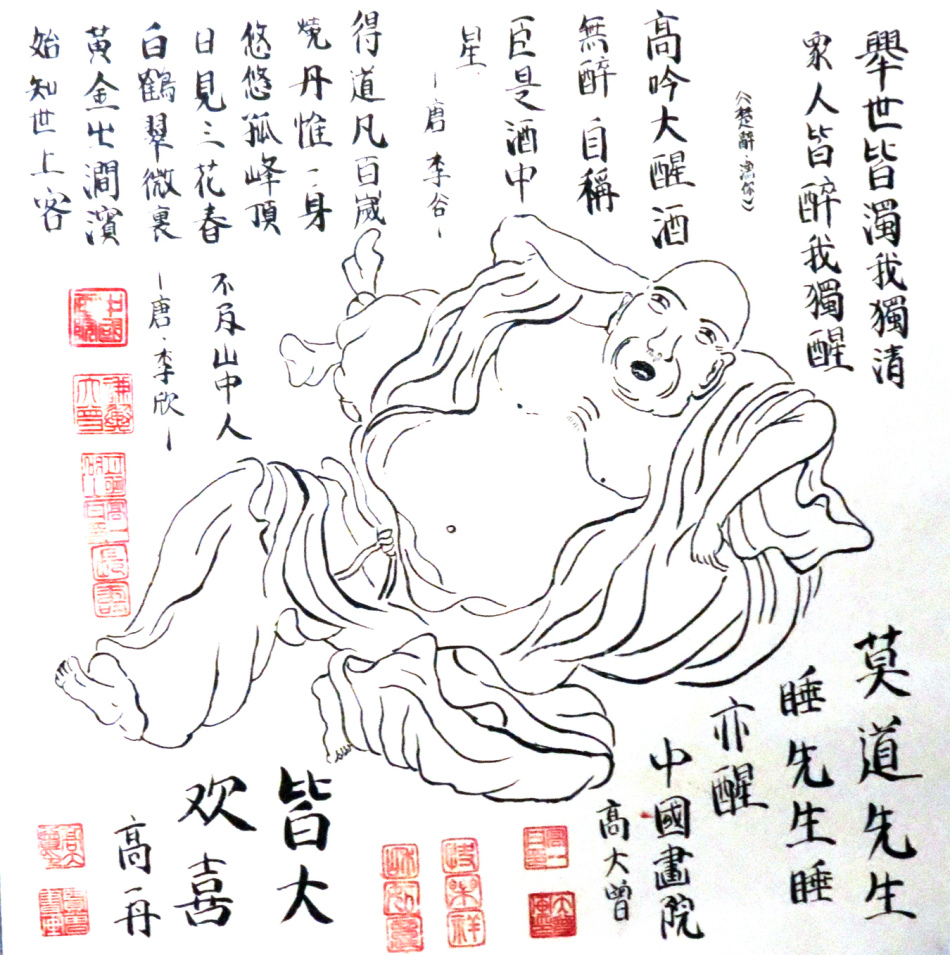 舉世皆濁我獨清
眾人皆醉我獨醒
《楚辭·漁
高吟大醒酒
無醉自稱
臣是酒中
星
—唐 李谷—
得道凡百歲
燒丹惟一身
悠悠孤峰頂
日見三花春
白鶴翠微裏
黃金出澗濱
始知世上客
不及山中人
—唐·李欣—
莫道先生
睡先生睡
亦醒
中國畫院
高大曾
皆大
欢喜
高一丹